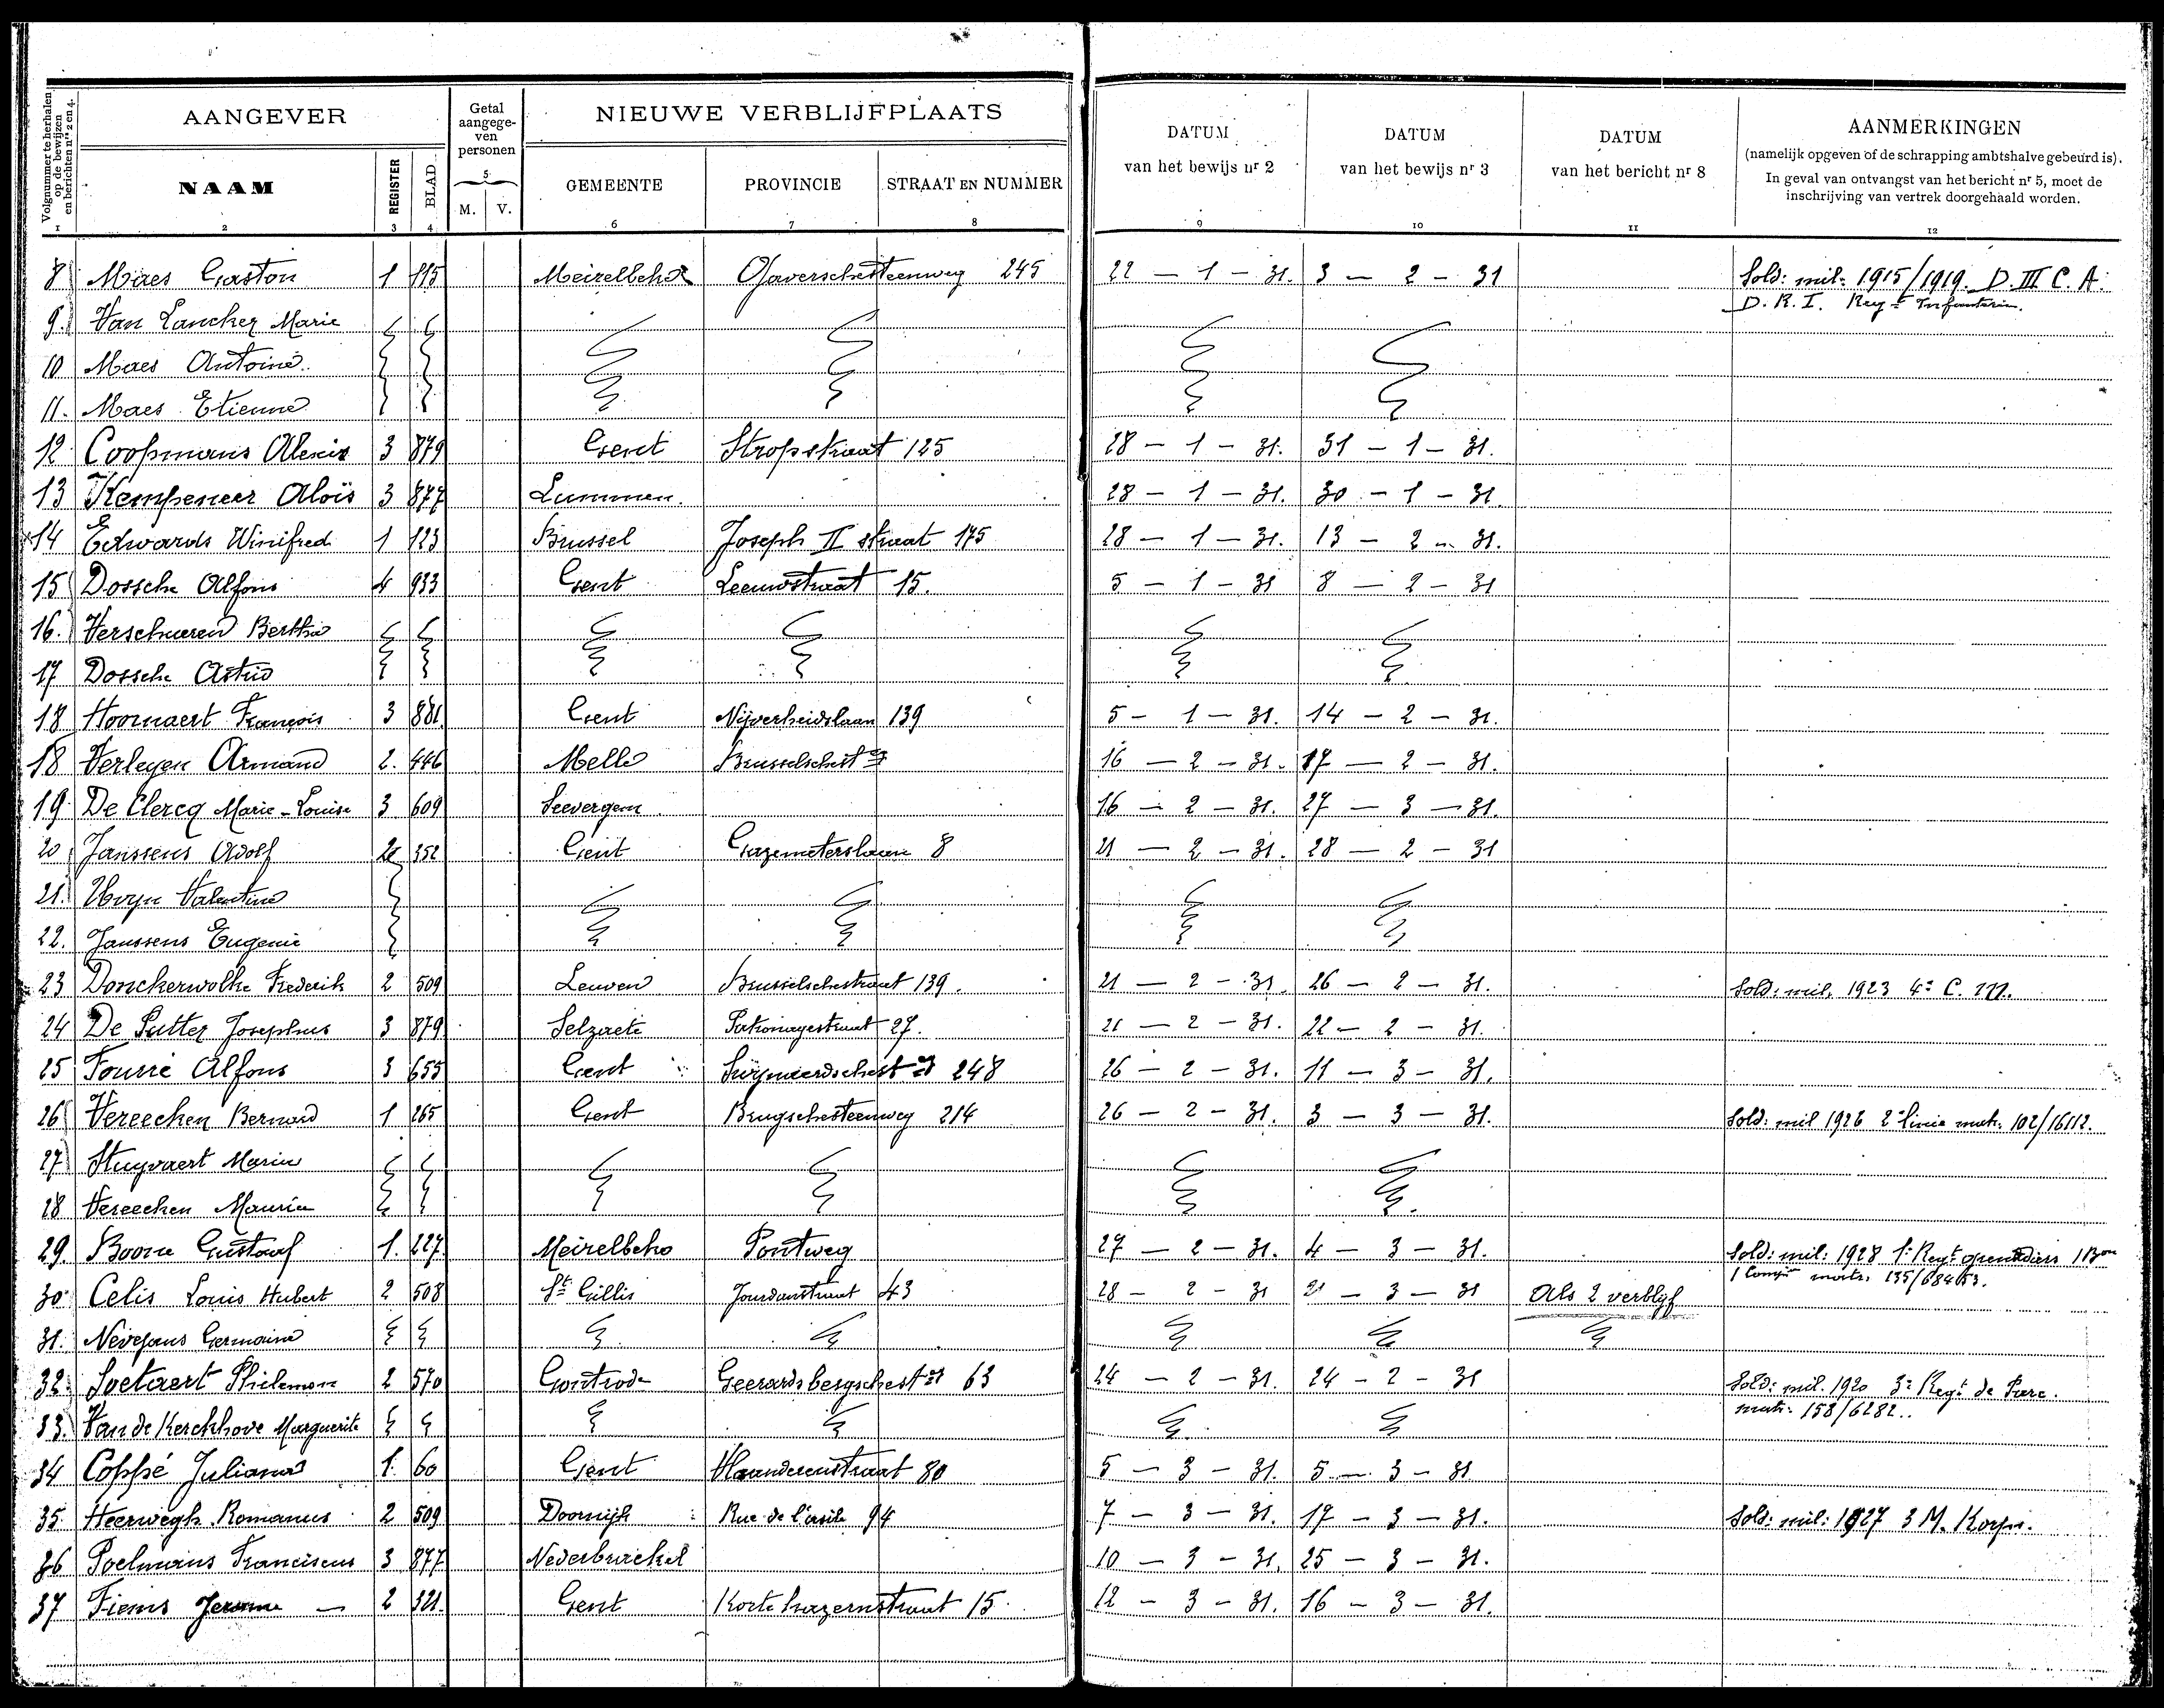 Volgnummer te herhalen op de bewijzen en berichten nrs 2 en 4.
AANGEVER
Getal aangege-ven personen
NIEUWE VERBLIJFPLAATS
DATUM van het bewijs nr 2
DATUM van het bewijs nr 3
DATUM van het bericht nr 8
AANMERKINGEN
(namelijk opgeven of de schrapping ambtshalve gebeurd is).
In geval van ontvangst van het bericht nr 5, moet de
inschrijving van vertrek doorgehaald worden.
NAAM REGISTER BLAD 5 M. V. GEMEENTE PROVINCIE STRAAT EN NUMMER
1 2 3 4 6 7 8 9 10 11 12
8 Maes Gaston 1 115 Meirelbeke 245 22 – 1 – 31. 3 – 2 – 31 Sold: mil: 1915/1919. D. III C. A.
D. R. I. Regt Infanterie.
9. Van Lancker Marie
10 Maes Antoine
11. Maes Etienne
12 Coopmans Alexis 3 879 Gent Stropstraat 125 28 – 1 – 31. 31 – 1 – 31.
13 Kempeneer Aloïs 3 877 Lummen. 28 – 1 – 31. 30 – 1 – 31
14 Edwards Winifred 1 123 Brussel Joseph II straat 175 28 – 1 – 31. 13 – 2 – 31.
15 Dossche Alfons 4 933 Gent Leeuwstraat 15. 5 – 1 – 31 8 – 2 – 31
16. Verschueren Bertha
17 Dossche Astrid
18 Hoornaert François 3 881 Gent Nijverheidslaan 139 5 – 1 – 31. 14 – 2 – 31.
18 Verleyen Armand 2. 446 Melle Brusselschestg 16 – 2 – 31. 17 – 2 – 31.
19. De Clercq Marie-Louise 3 609 Seevergem 16 – 2 – 31. 27 – 3 – 31.
20 Janssens Adolf 352 Gent Gazometerslaan 8 21 – 2 – 31. 28 – 2 – 31
21. Valentine
22. Janssens Eugenie
23 Donckerwolke Frederik 2 509 Leuven Brusselschestraat 139. 21 – 2 – 31. 26 – 2 – 31. Sold: mil. 1923 4e C. M.
24 De Sutter Josephus 3 879 Selzaete Patronagestraat 27. 21 – 2 – 31. 22 – 2 – 31.
25 Fourré Alfons 3 655 Gent 248 26 – 2 – 31. 11 – 3 – 31.
26 Vereecken Bernard 1 265 Gent Brugschesteenweg 214 26 – 2 – 31. 3 – 3 – 31. Sold: mil 1926 2e linie matr. 102/16112.
27 Stuyvaert Maria
28 Vereecken Maurice
29. Boone Gustaaf 1. 227. Meirelbeke Pontweg 27 – 2 – 31. 4 – 3 – 31. Sold: mil: 1928 1e Regt grenadiers 1 Bon
1 Compie matr. 135/68453.
30 Celis Louis Hubert 2 508 St Gillis Jourdanstraat 43 28 – 2 – 31 – 3 – 31 Als 2 verblijf
31. Nevejans Germaine
32. Soetaert Philemon 2 570 Gontrode Geerardsbergschestg 63 24 – 2 – 31. 24 – 2 – 31 Sold: mil. 1920 3e Regt de Parc.
matr. 158/6282..
33. Van de Kerckhove Marguerite
34 Coppé Juliana 1. 60 Gent Vlaanderenstraat 80 5 – 3 – 31. 5 – 3 – 31
35 Heerwegh Romanus 2 509 Doornijk Rue de l'asile 94 7 – 3 – 31. 17 – 3 – 31. Sold: mil: 1927 3 M. Korps.
36 Poelmans Franciscus 3 877 Nederbrackel 10 – 3 – 31. 25 – 3 – 31.
37 Fiems Jerome – 2 321. Gent Korte kazernstraat 15. 12 – 3 – 31. 16 – 3 – 31.